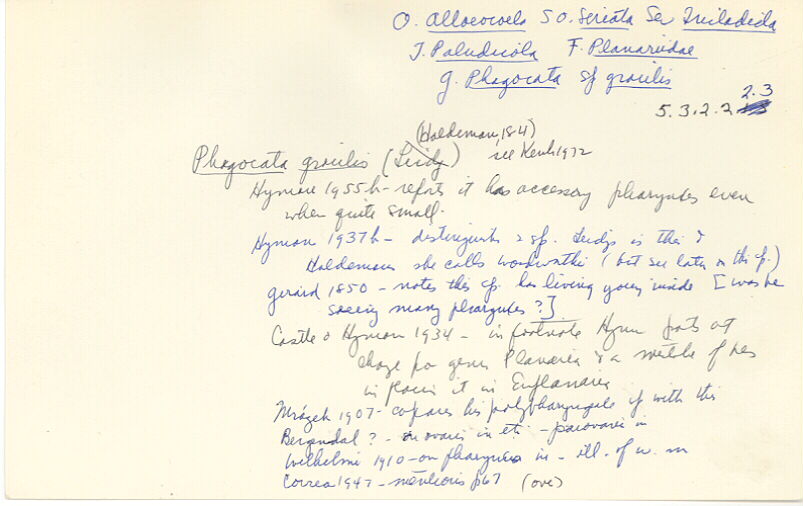 O. Alloeocoela SO. Seriata Sec Tricladida
T. Paludicola F. Planariidae
g. Phagocata sp gracilis
2.3
5.3.2.2
(Haldeman, 184)
Phagocata gracilis (Leidy) see Kenk 1972
Hyman 1955h - reports it has accessory pharynges even
when quite small.
Hyman 1937h - distinguishes 2 sp. Leidys is this &
Haldemans she calls woodworthi (but see later on this sp.)
Girard 1850 - notes this sp. has living young inside [was he
seeing many pharynges?]
Castle & Hyman 1934 - in footnote Hyman puts at
change for genus Planaria & a mistake of hers
in placing it in Euplanaria
Mrázek 1907 - compares his polypharyngeale sp with this
Bergendal ? - on ovaries in - parovaria in
Wilhelmi 1910 - on pharynges in - ill. of w. m
Correa 1947 - mentions p67 (over)